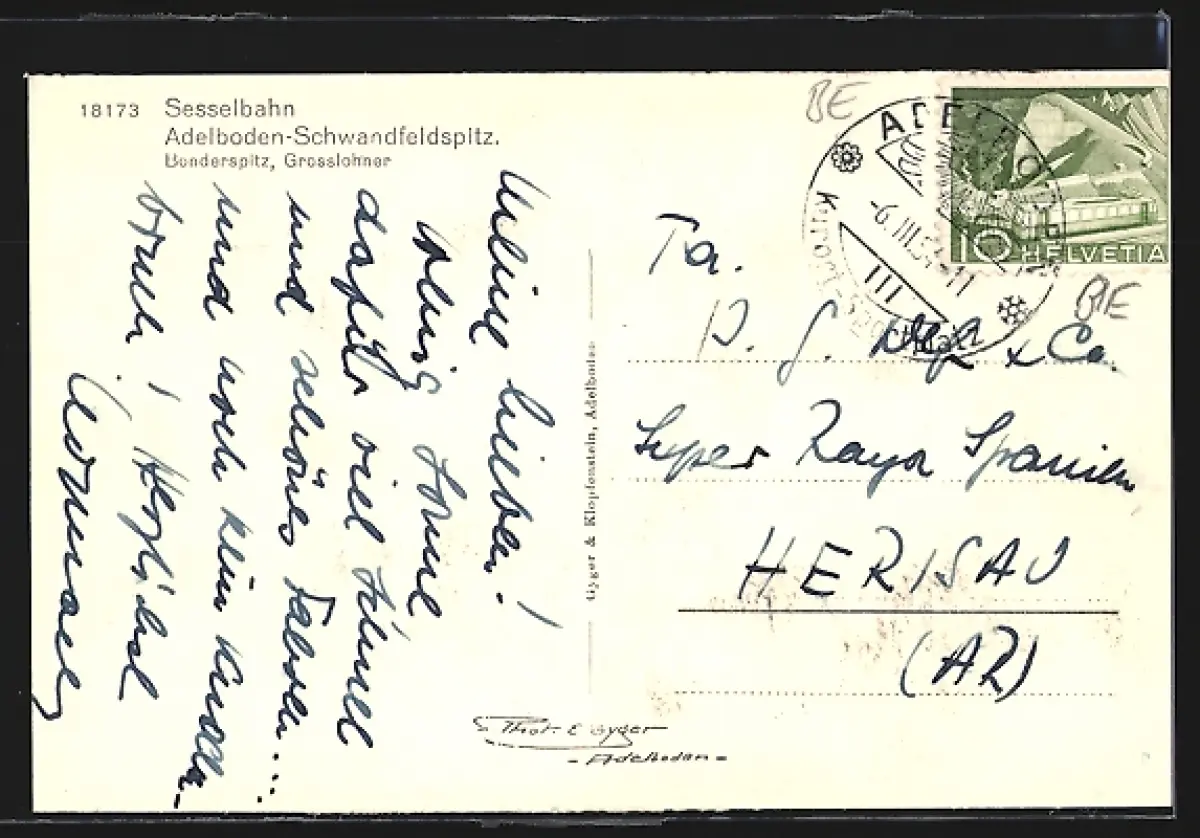 18173 Sesselbahn
Adelboden-Schwandfeldspitz.
Bonderspitz, Grosslohner
Meine Lieben!
Wenig Sonne
dafür viel Himmel
und schönes Fahren....
und noch kein Knochen-
bruch! Herzlichst
Gyger & Klopfenstein, Adelboden
Phot. E. Gyger
- Adelboden -
BE
ADELBODEN
-6.III.5
10 HELVETIA
BE
Fa.
& Co.
Super Raya Spanien
HERISAU
(AR)